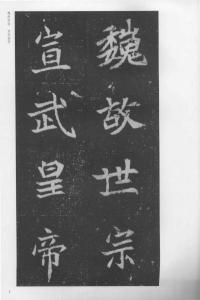 魏故世宗
宣武皇帝